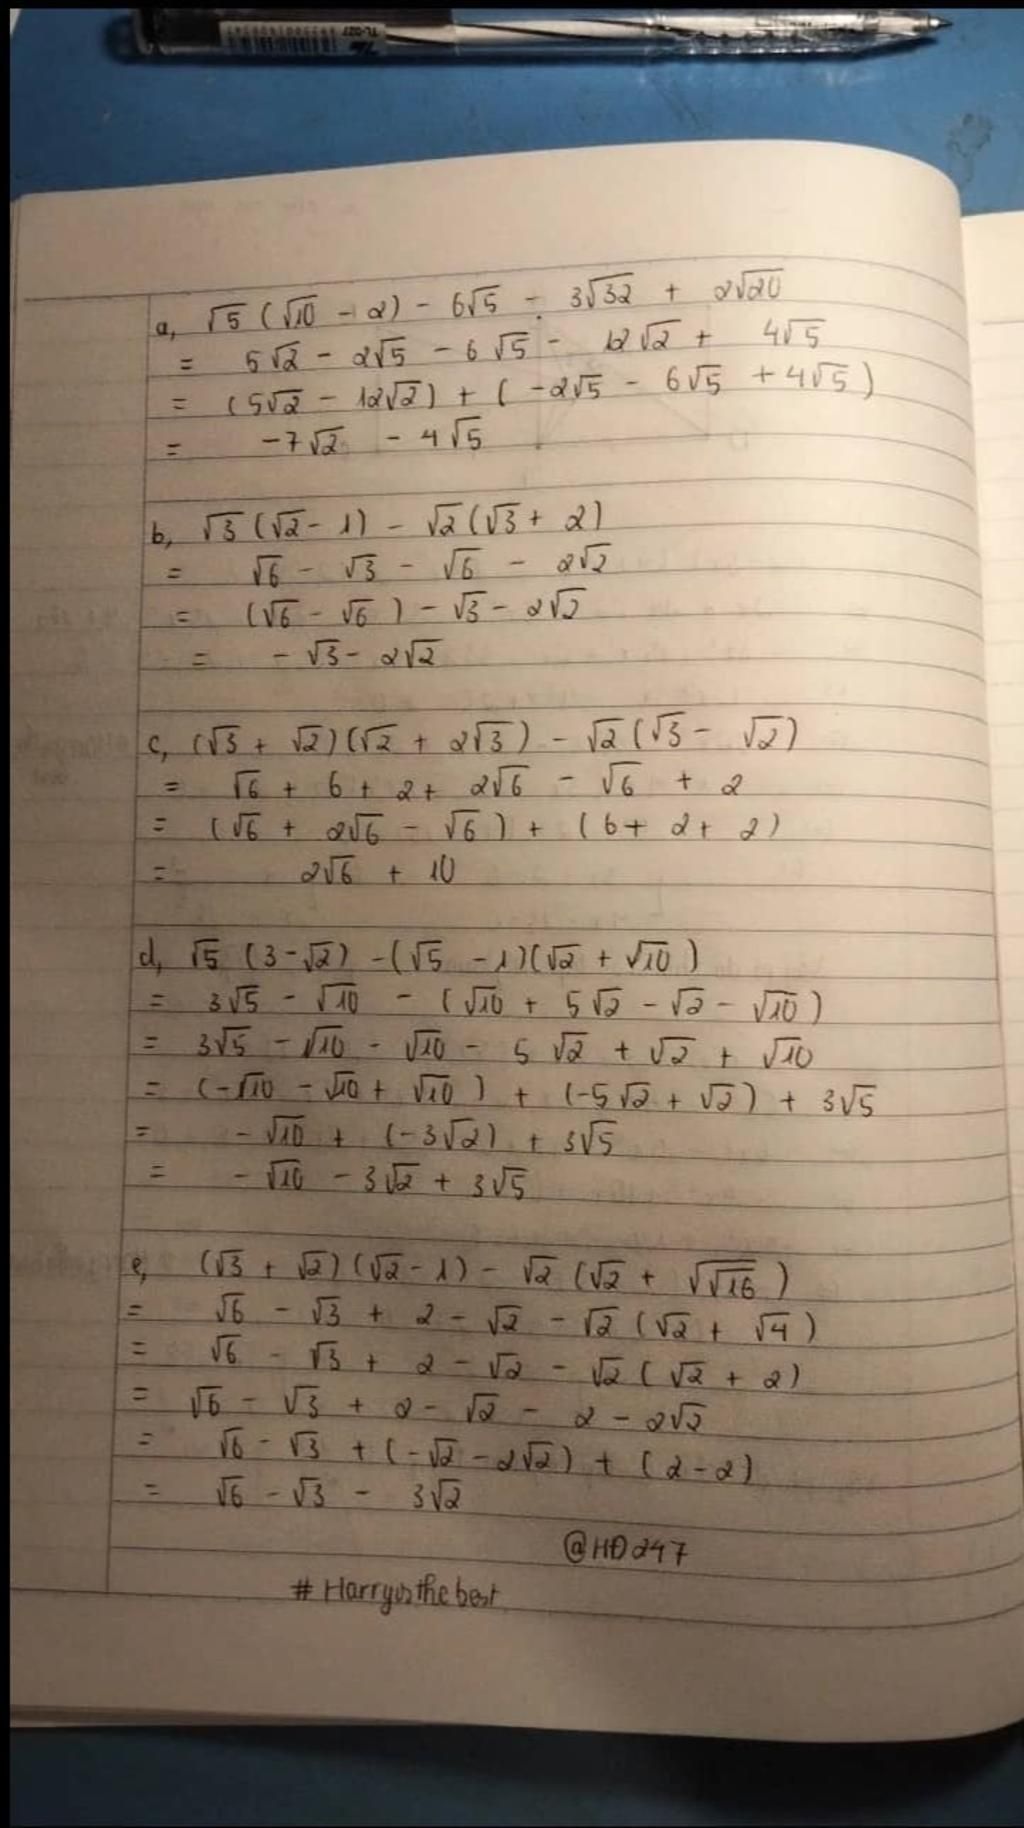 a, √5 (√10 - 2) - 6√5 - 3√32 + 2√20
= 5√2 - 2√5 - 6√5 - 12√2 + 4√5
= (5√2 - 12√2) + (-2√5 - 6√5 + 4√5)
= -7√2 - 4√5
b, √3 (√2 - 1) - √2 (√3 + 2)
= √6 - √3 - √6 - 2√2
= (√6 - √6) - √3 - 2√2
= -√3 - 2√2
c, (√3 + √2)(√2 + 2√3) - √2 (√3 - √2)
= √6 + 6 + 2 + 2√6 - √6 + 2
= (√6 + 2√6 - √6) + (6 + 2 + 2)
= 2√6 + 10
d, √5 (3 - √2) - (√5 - 1)(√2 + √10)
= 3√5 - √10 - (√10 + 5√2 - √2 - √10)
= 3√5 - √10 - √10 - 5√2 + √2 + √10
= (-√10 - √10 + √10) + (-5√2 + √2) + 3√5
= -√10 + (-3√2) + 3√5
= -√10 - 3√2 + 3√5
e, (√3 + √2)(√2 - 1) - √2 (√2 + √√16)
= √6 - √3 + 2 - √2 - √2 (√2 + √4)
= √6 - √3 + 2 - √2 - √2 (√2 + 2)
= √6 - √3 + 2 - √2 - 2 - 2√2
= √6 - √3 + (-√2 - 2√2) + (2 - 2)
= √6 - √3 - 3√2
@HĐ247
#Harryisthebest